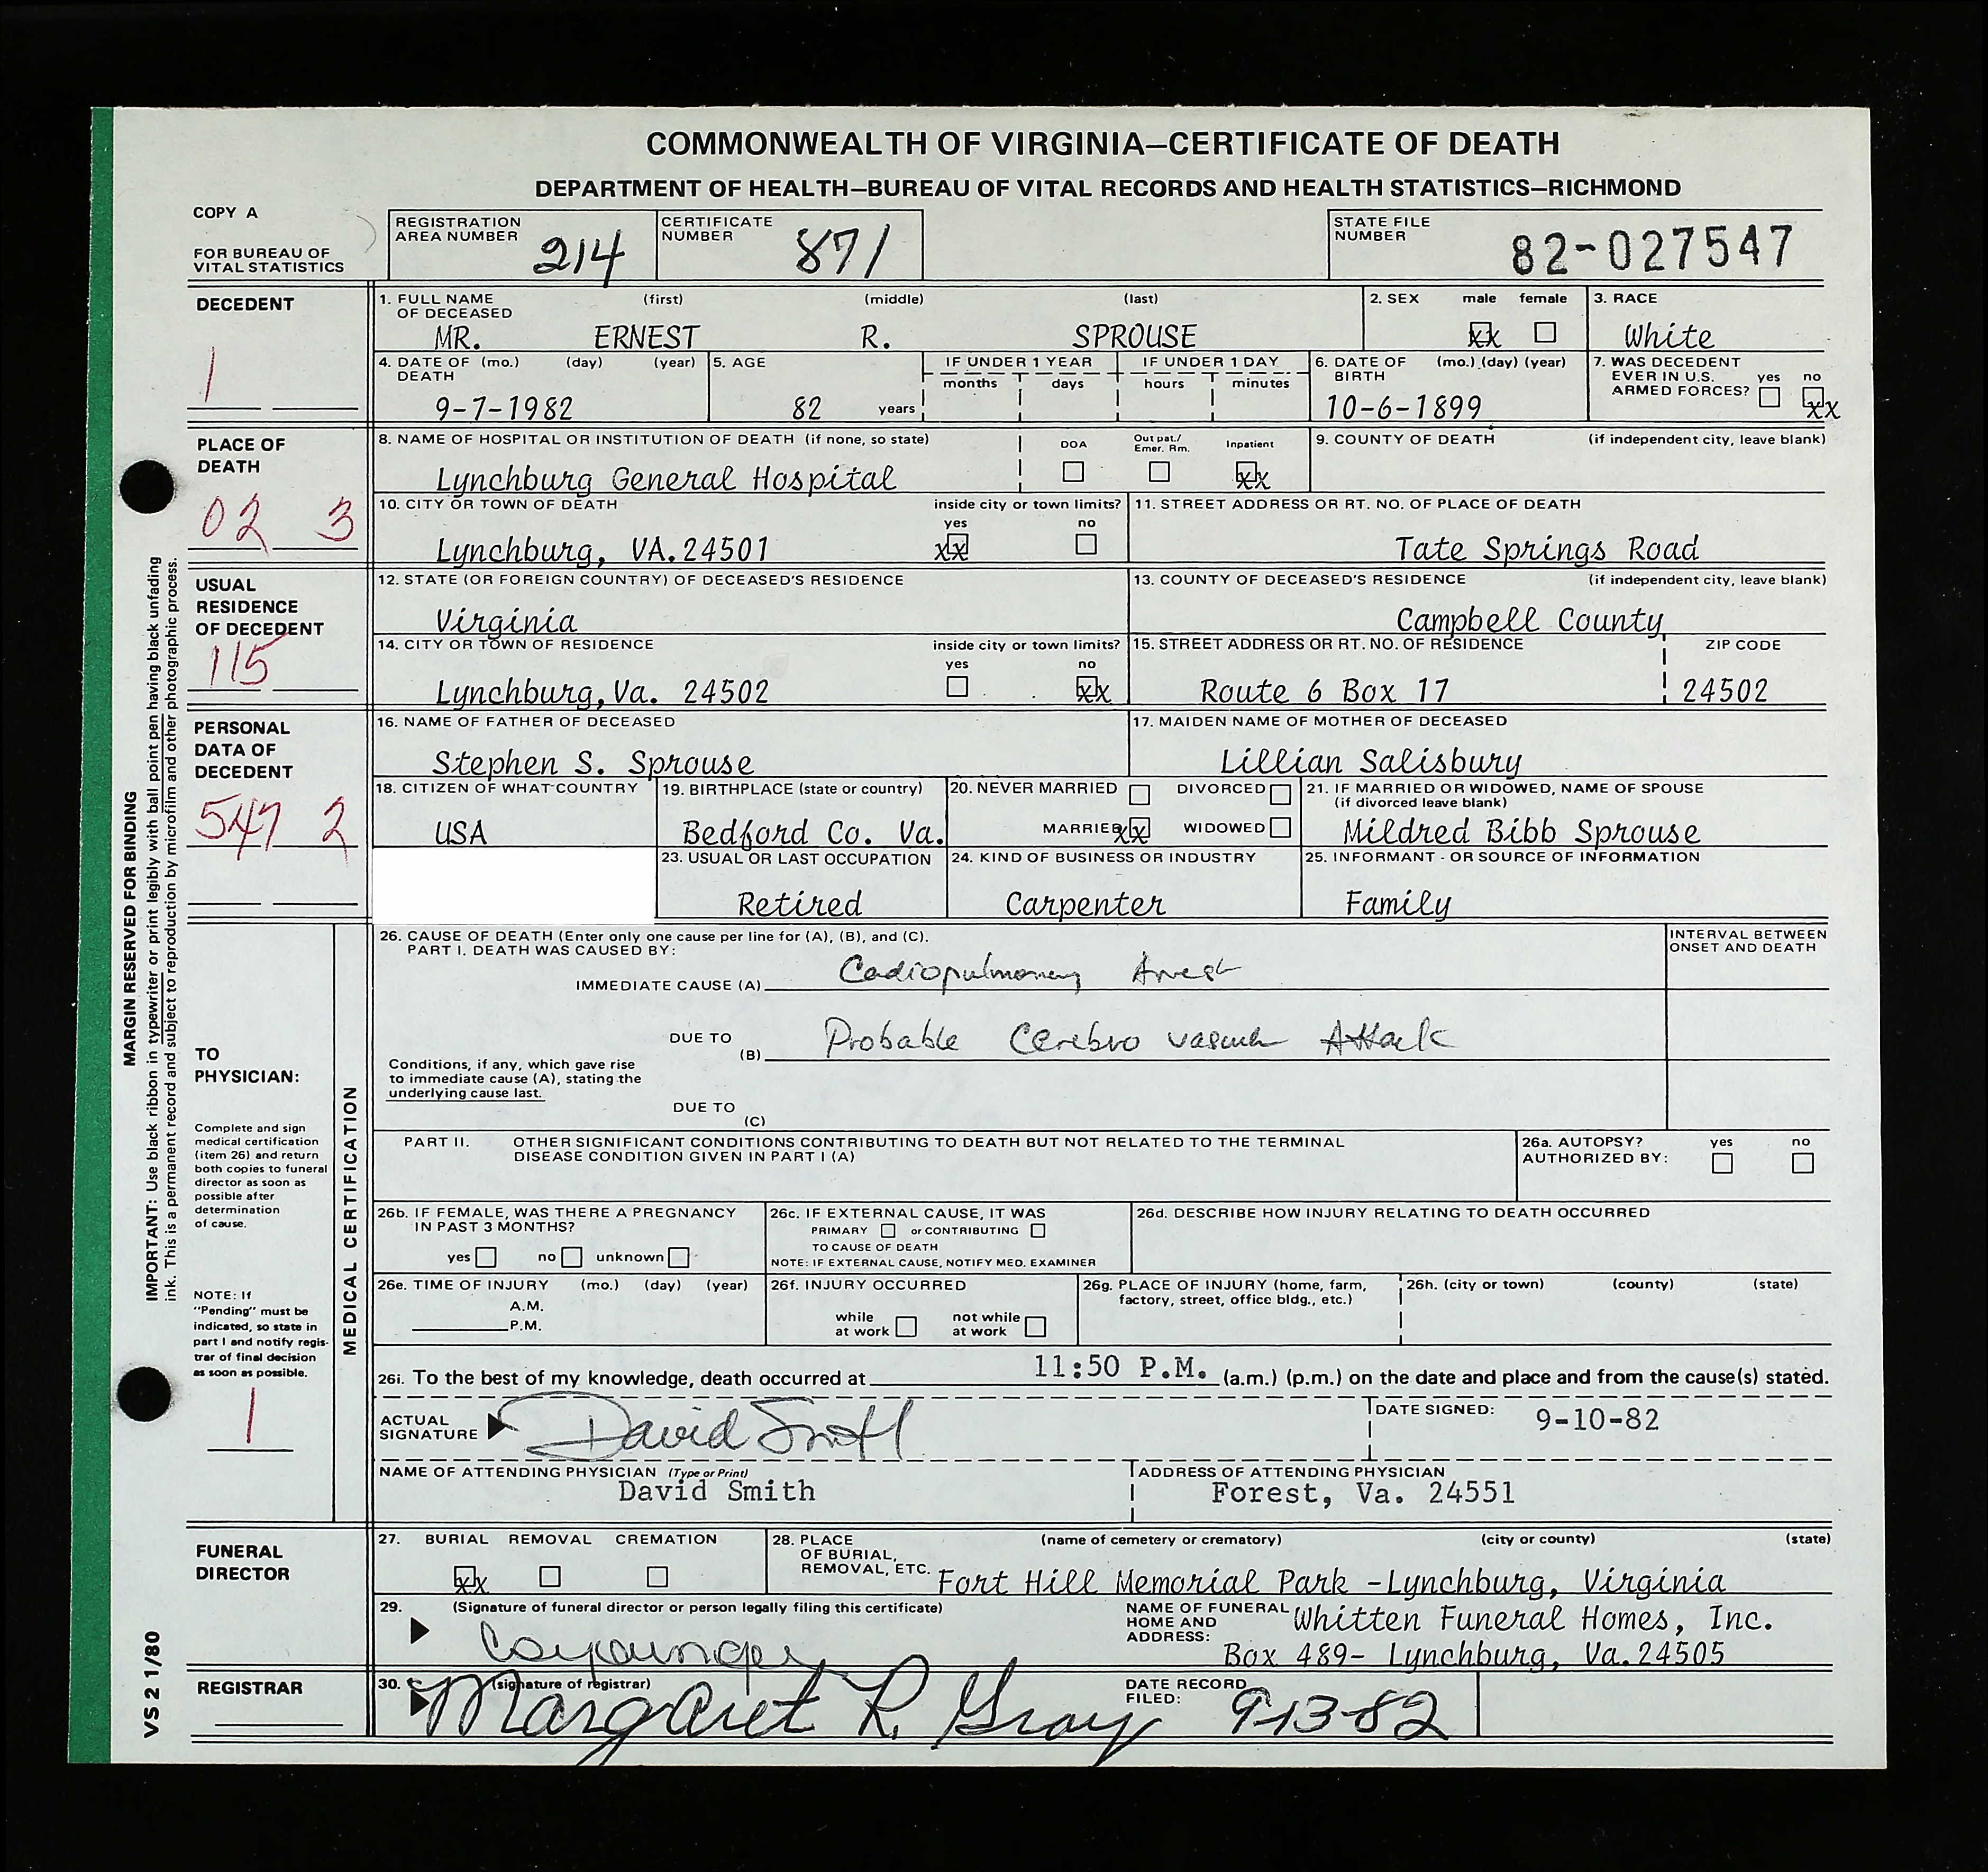 COMMONWEALTH OF VIRGINIA—CERTIFICATE OF DEATH
DEPARTMENT OF HEALTH—BUREAU OF VITAL RECORDS AND HEALTH STATISTICS—RICHMOND
COPY A
FOR BUREAU OF
VITAL STATISTICS
REGISTRATION
AREA NUMBER 214
CERTIFICATE
NUMBER 871
STATE FILE
NUMBER 82-027547
DECEDENT
1
1. FULL NAME (first) (middle) (last)
OF DECEASED
MR. ERNEST R. SPROUSE
2. SEX male female
xx
3. RACE
White
4. DATE OF (mo.) (day) (year)
DEATH
9-7-1982
5. AGE
82 years
IF UNDER 1 YEAR
months days
IF UNDER 1 DAY
hours minutes
6. DATE OF (mo.) (day) (year)
BIRTH
10-6-1899
7. WAS DECEDENT
EVER IN U.S. yes no
ARMED FORCES?
xx
PLACE OF
DEATH
02 3
8. NAME OF HOSPITAL OR INSTITUTION OF DEATH (if none, so state)
Lynchburg General Hospital
DOA Out pat./ Inpatient
Emer. Rm.
xx
9. COUNTY OF DEATH (if independent city, leave blank)
10. CITY OR TOWN OF DEATH inside city or town limits?
yes no
Lynchburg, VA. 24501 xx
11. STREET ADDRESS OR RT. NO. OF PLACE OF DEATH
Tate Springs Road
USUAL
RESIDENCE
OF DECEDENT
115
12. STATE (OR FOREIGN COUNTRY) OF DECEASED'S RESIDENCE
Virginia
13. COUNTY OF DECEASED'S RESIDENCE (if independent city, leave blank)
Campbell County
14. CITY OR TOWN OF RESIDENCE inside city or town limits?
yes no
Lynchburg, Va. 24502 xx
15. STREET ADDRESS OR RT. NO. OF RESIDENCE ZIP CODE
Route 6 Box 17 24502
PERSONAL
DATA OF
DECEDENT
547 2
16. NAME OF FATHER OF DECEASED
Stephen S. Sprouse
17. MAIDEN NAME OF MOTHER OF DECEASED
Lillian Salisbury
18. CITIZEN OF WHAT COUNTRY
USA
19. BIRTHPLACE (state or country)
Bedford Co. Va.
20. NEVER MARRIED DIVORCED
MARRIED xx WIDOWED
21. IF MARRIED OR WIDOWED, NAME OF SPOUSE
(if divorced leave blank)
Mildred Bibb Sprouse
23. USUAL OR LAST OCCUPATION
Retired
24. KIND OF BUSINESS OR INDUSTRY
Carpenter
25. INFORMANT - OR SOURCE OF INFORMATION
Family
MARGIN RESERVED FOR BINDING
IMPORTANT: Use black ribbon in typewriter or print legibly with ball point pen having black unfading
ink. This is a permanent record and subject to reproduction by microfilm and other photographic process.
VS 2 1/80
TO
PHYSICIAN:
Complete and sign
medical certification
(item 26) and return
both copies to funeral
director as soon as
possible after
determination
of cause.
NOTE: If
"Pending" must be
indicated, so state in
part I and notify regis-
trar of final decision
as soon as possible.
1
MEDICAL CERTIFICATION
26. CAUSE OF DEATH (Enter only one cause per line for (A), (B), and (C).
PART I. DEATH WAS CAUSED BY:
INTERVAL BETWEEN
ONSET AND DEATH
IMMEDIATE CAUSE (A) Cadiopulmonary Arrest
DUE TO
(B) Probable Cerebro vascular Attack
Conditions, if any, which gave rise
to immediate cause (A), stating the
underlying cause last.
DUE TO
(C)
PART II. OTHER SIGNIFICANT CONDITIONS CONTRIBUTING TO DEATH BUT NOT RELATED TO THE TERMINAL
DISEASE CONDITION GIVEN IN PART I (A)
26a. AUTOPSY? yes no
AUTHORIZED BY:
26b. IF FEMALE, WAS THERE A PREGNANCY
IN PAST 3 MONTHS?
yes no unknown
26c. IF EXTERNAL CAUSE, IT WAS
PRIMARY or CONTRIBUTING
TO CAUSE OF DEATH
NOTE: IF EXTERNAL CAUSE, NOTIFY MED. EXAMINER
26d. DESCRIBE HOW INJURY RELATING TO DEATH OCCURRED
26e. TIME OF INJURY (mo.) (day) (year)
A.M.
P.M.
26f. INJURY OCCURRED
while not while
at work at work
26g. PLACE OF INJURY (home, farm,
factory, street, office bldg., etc.)
26h. (city or town) (county) (state)
26i. To the best of my knowledge, death occurred at 11:50 P.M. (a.m.) (p.m.) on the date and place and from the cause(s) stated.
ACTUAL
SIGNATURE David Smith
DATE SIGNED: 9-10-82
NAME OF ATTENDING PHYSICIAN (Type or Print)
David Smith
ADDRESS OF ATTENDING PHYSICIAN
Forest, Va. 24551
FUNERAL
DIRECTOR
27. BURIAL REMOVAL CREMATION
xx
28. PLACE (name of cemetery or crematory) (city or county) (state)
OF BURIAL,
REMOVAL, ETC. Fort Hill Memorial Park -Lynchburg, Virginia
29. (Signature of funeral director or person legally filing this certificate)
NAME OF FUNERAL
HOME AND
ADDRESS:
Whitten Funeral Homes, Inc.
Box 489- Lynchburg, Va. 24505
REGISTRAR
30. (signature of registrar)
Margaret R. Gray
DATE RECORD
FILED: 9-13-82